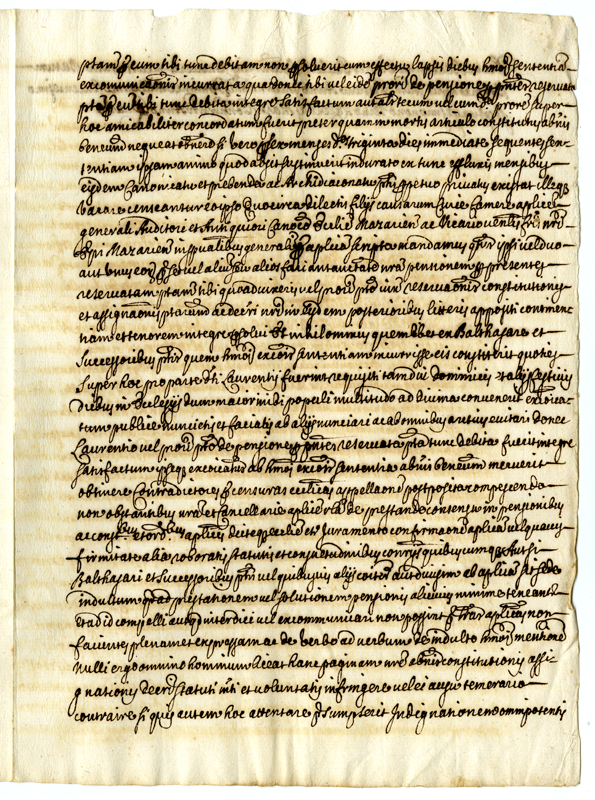 ptam pseum tibi tunc debitam non psoluerit cum effectu lapsis diebus hmoi sententia
excomunicaonis incurrat a qua donec tibi vel eidem prori de pensione pnter reseruata
pta pseum tibi tunc debita integre satisfactum aut alr tecum vel cum dto prore super
hoc amicabiliter concordatum fuerit preterquam in mortis articulo constitutus abnis
beneum nequeat obtineri si vero per sex menses dtos triginta dies immediate sequentes sen
tentiam ipsam animo quod absit sustinuerit indurato ex tunc effluxis mensibus
eisdem Canonicatu et prebenda ac Archidiaconatu ptis perpetuo priuatus existat illaq
vacare censeantur eo ipso Quocirca dilectis filijs causarum Curie Camere aplice
generali Auditore et Antiquiori Canonico Eclie Mazarien ac Vicario venlis fris nri
Epi Mazarien in spualibus generali p aplica scripta mandamus qtus ipsi vel duo
aut unus eorum per se vel alium seu alios faciant auctate nra pensionem p presentes
reseruatam ptam tibi quoad vixeris vel prori pto iuxta reseruaonis constitutionis
et assignaonis ptarum ac decreti nri in eisdem posterioribus litteris appositi continen
tiam et tenorem integre psolui Et nihilominus quemlibet ex Balthasare et
Successoribus ptis quem hmoi excois sententiam incurrisse eis constiterit quoties
super hoc pro parte dti Laurentij fuerint requisiti tamdiu dominicis et alijs festiuis
diebus in Eclesijs dum maior inibi populi multitudo ad diuina conuenerit excoica
tum publice nuncient et faciant ab alijs nunciari ac ab omnibus arctius euitari donec
Laurentio vel prori pto de pensione p pntes reseruata pta tunc debita fuerit integre
satisfactum ipseq excoicatus ab hmoi excois sententia abnis beneum meruerit
obtinere Contradictores p censuram eclicam appellaone postposita compescendo
non obstantibus nra et Cancellarie aplice rla de prestando consensu in pensionibus
ac constnibus et ordnibus aplicis dicteq eclie et Juramento confirmaone aplica vel quauis
firmitate alia roboratis statutis et consuetudinibus conrijs quibuscumq Aut si
Balthasari et Successoribus ptis vel quibusuis alijs coiter aut diuisim ab aplica sit sede
indultum quod ad prestationem vel solutionem pensionis alicuius minime teneantur
et ad id compelli aut quod interdici vel excommunicari non possint p lras aplicas non
facientes plenam et expressam ac de verbo ad verbum de indulto hmoi mentionem
Nulli ergo omnino hominum liceat hanc paginam nre abnis constitutionis assi
gnationis decreti statuti mti et voluntatis infringere vel ei ausu temerario
contraire si quis autem hoc attentare psumpserit Indignationem omnipotentis